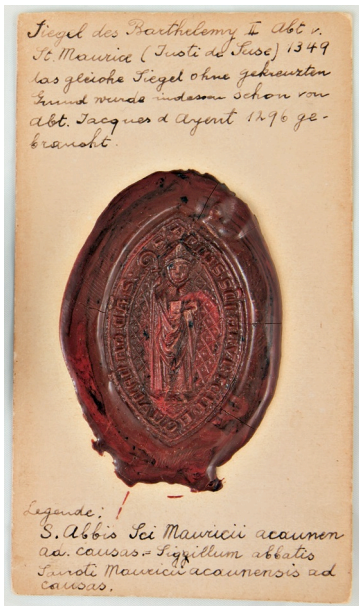 Siegel des Barthelemy II Abt v.
St. Maurice (Justi de Suse) 1349
das gleiche Siegel ohne gekreuzten
Grund wurde indessen schon von
Abt. Jacques d Ayent 1296 ge-
braucht.
Legende:
S. Abbis Sci Mauricii acaunen
ad. causas = Sigyillum abbatis
Sancti Mauricii acaunensis ad
causas.